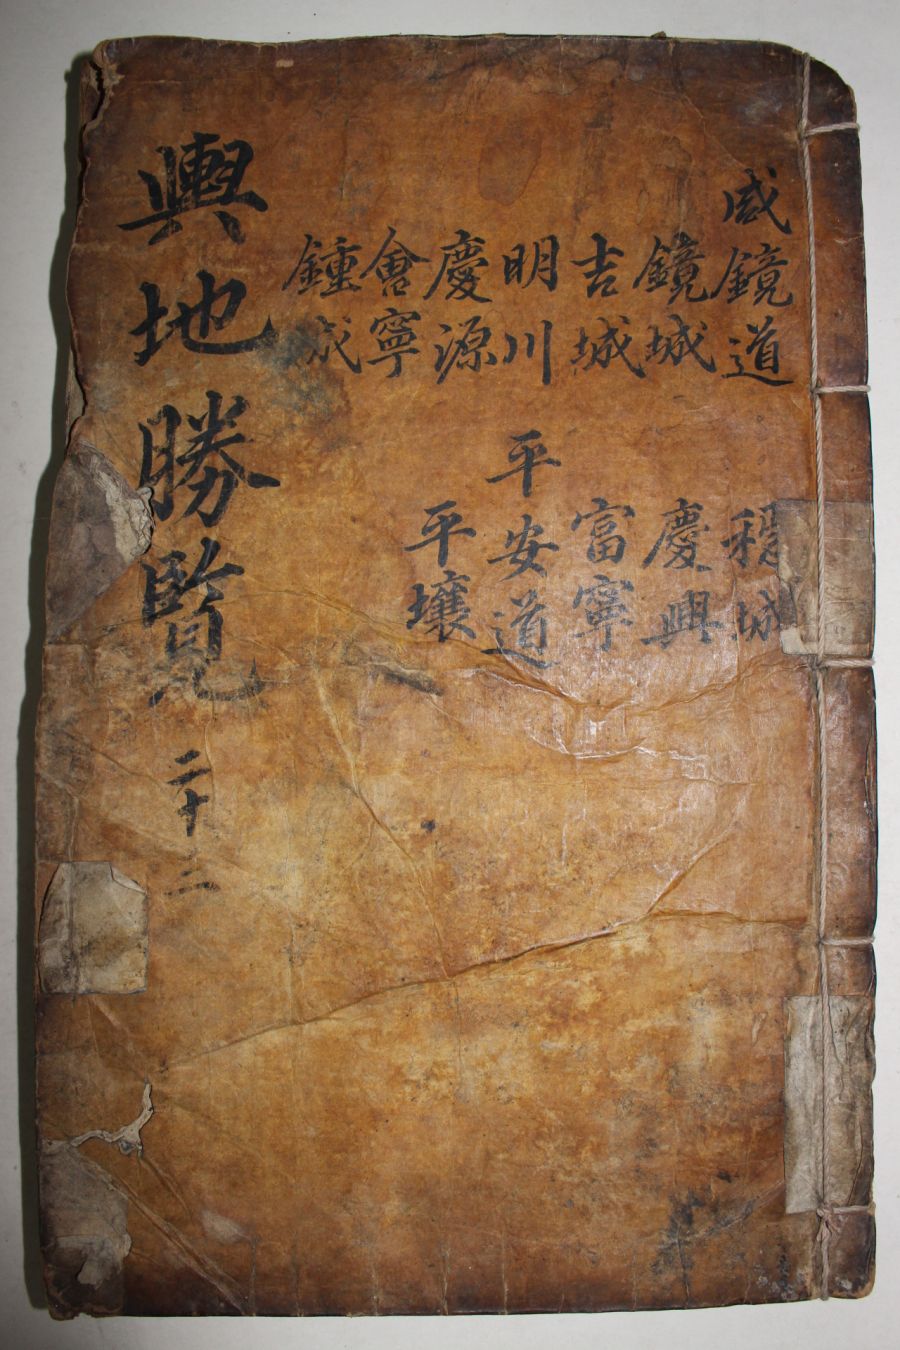 咸鏡道
鏡城
吉城
明川
慶源
會寧
鍾城
穩城
慶興
富寧
平安道
平壤
輿地勝覽 二十二